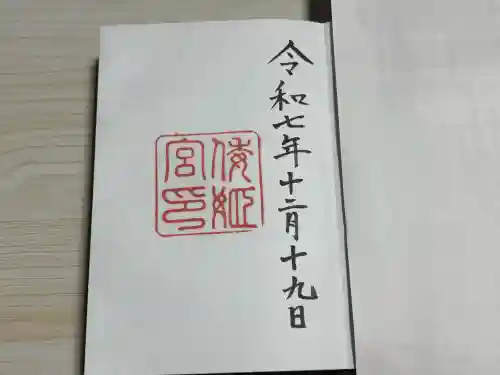 令和七年十二月十九日
倭姫
宮印